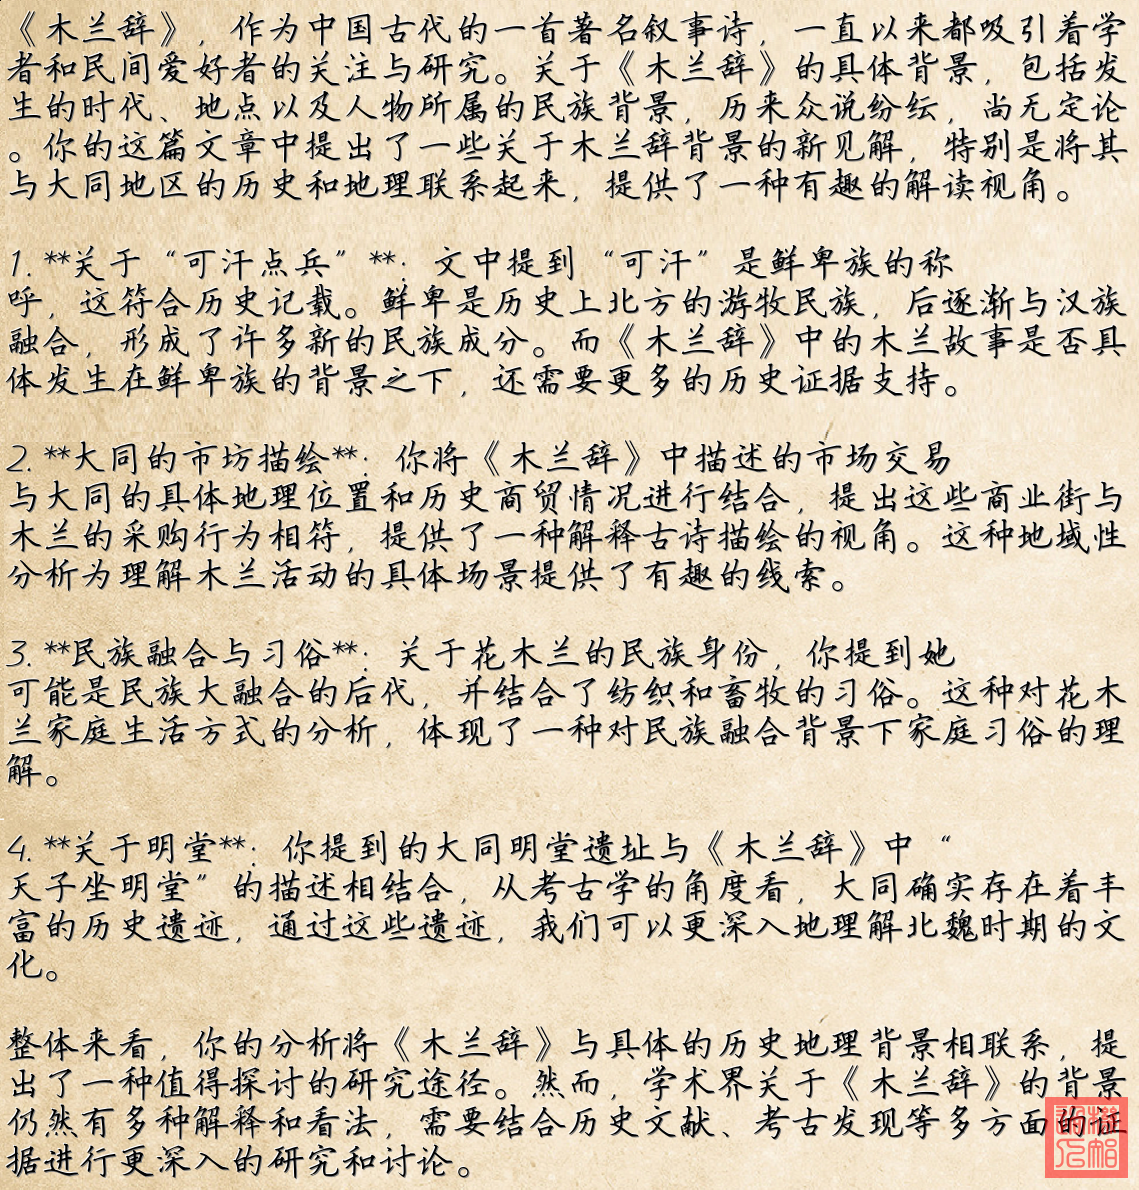 《木兰辞》，作为中国古代的一首著名叙事诗，一直以来都吸引着学
者和民间爱好者的关注与研究。关于《木兰辞》的具体背景，包括发
生的时代、地点以及人物所属的民族背景，历来众说纷纭，尚无定论
。你的这篇文章中提出了一些关于木兰辞背景的新见解，特别是将其
与大同地区的历史和地理联系起来，提供了一种有趣的解读视角。
1. **关于“可汗点兵”**：文中提到“可汗”是鲜卑族的称
呼，这符合历史记载。鲜卑是历史上北方的游牧民族，后逐渐与汉族
融合，形成了许多新的民族成分。而《木兰辞》中的木兰故事是否具
体发生在鲜卑族的背景之下，还需要更多的历史证据支持。
2. **大同的市坊描绘**：你将《木兰辞》中描述的市场交易
与大同的具体地理位置和历史商贸情况进行结合，提出这些商业街与
木兰的采购行为相符，提供了一种解释古诗描绘的视角。这种地域性
分析为理解木兰活动的具体场景提供了有趣的线索。
3. **民族融合与习俗**：关于花木兰的民族身份，你提到她
可能是民族大融合的后代，并结合了纺织和畜牧的习俗。这种对花木
兰家庭生活方式的分析，体现了一种对民族融合背景下家庭习俗的理
解。
4. **关于明堂**：你提到的大同明堂遗址与《木兰辞》中“
天子坐明堂”的描述相结合，从考古学的角度看，大同确实存在着丰
富的历史遗迹，通过这些遗迹，我们可以更深入地理解北魏时期的文
化。
整体来看，你的分析将《木兰辞》与具体的历史地理背景相联系，提
出了一种值得探讨的研究途径。然而，学术界关于《木兰辞》的背景
仍然有多种解释和看法，需要结合历史文献、考古发现等多方面的证
据进行更深入的研究和讨论。